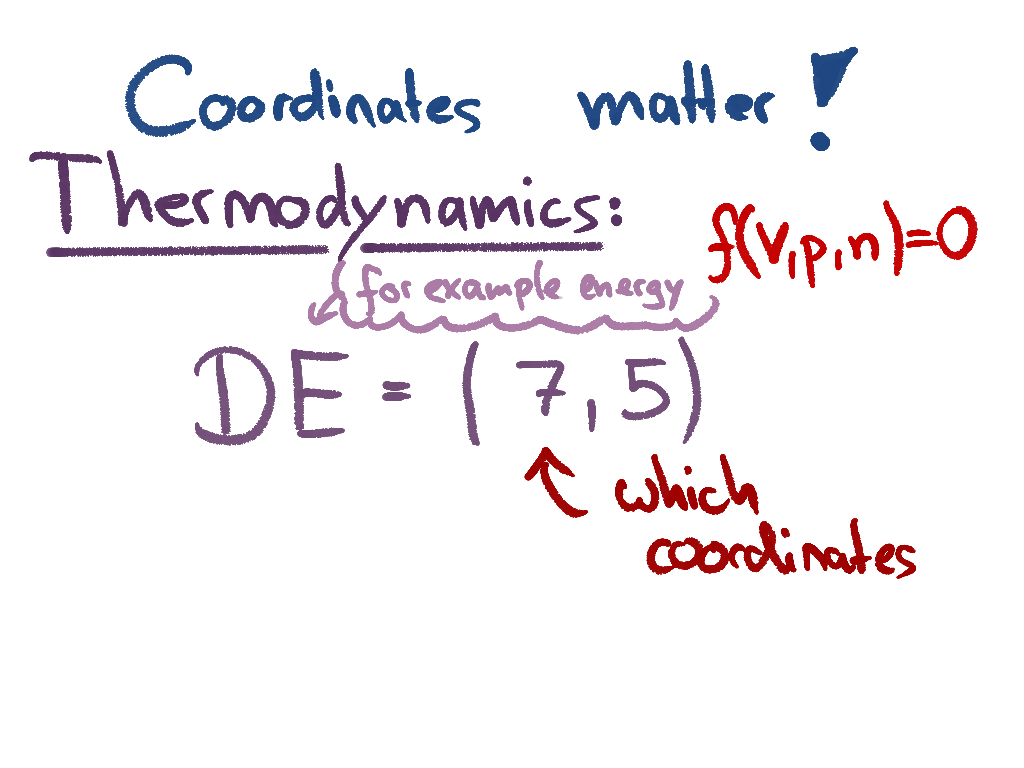 Coordinates matter!
Thermodynamics:
f(V,p,n)=0
for example energy
DE = (7,5)
which
coordinates